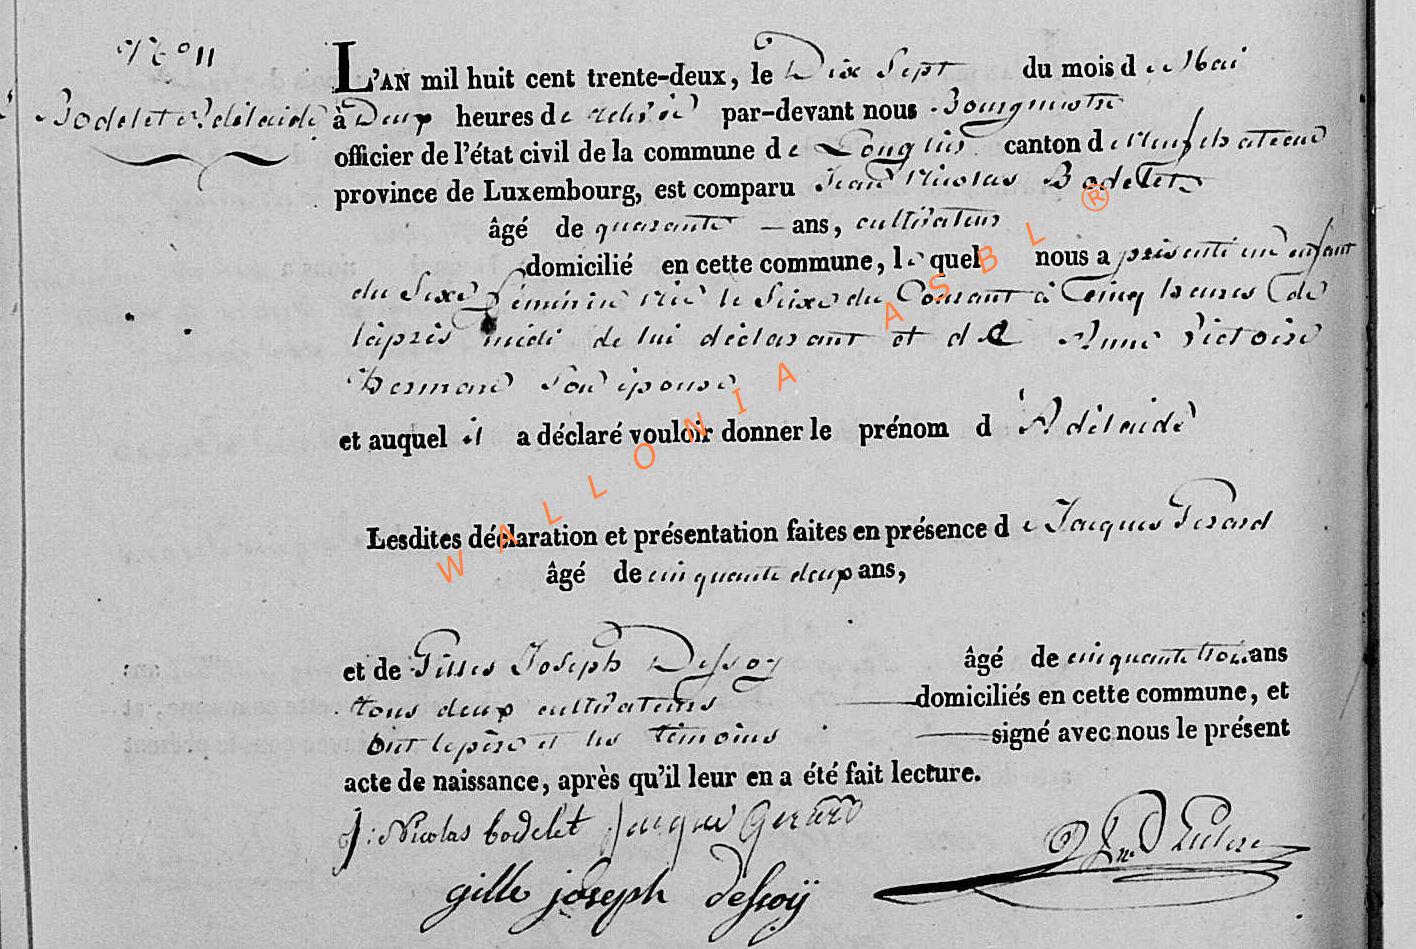 N.° 11
Bodelet Adélaïde
L'AN mil huit cent trente-deux, le Dix Sept du mois de Mai
à Deux heures de relevée par-devant nous Bourgmestre
officier de l'état civil de la commune de Longlier canton de Neufchateau
province de Luxembourg, est comparu Jean Nicolas Bodelet
âgé de quarante ans, cultivateur
domicilié en cette commune, lequel nous a présenté un enfant
du Sexe féminin née le Seize du Courant à Cinq heures de
laprès midi de lui déclarant et de Anne Victoire
Son épouse
et auquel il a déclaré vouloir donner le prénom d'Adélaïde
Lesdites déclaration et présentation faites en présence de Jacques Gerard
âgé de cinquante deux ans,
et de Gilles Joseph Dessoy âgé de cinquante trois ans
tous deux cultivateurs domiciliés en cette commune, et
Ont le père et les témoins signé avec nous le présent
acte de naissance, après qu'il leur en a été fait lecture.
J: Nicolas bodelet Jacque Gerard
gille joseph dessoÿ
WALLONIA ASBL ®